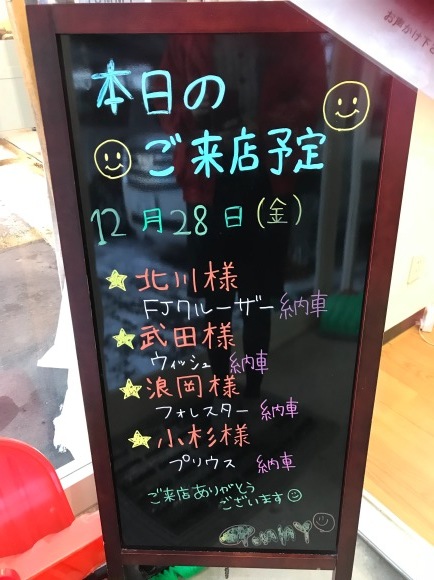 お声かけ下さ
本日の
ご来店予定
12月28日(金)
北川様
FJクルーザー 納車
武田様
ウィッシュ 納車
浪岡様
フォレスター 納車
小杉様
プリウス 納車
ご来店ありがとう
ございます
TommY